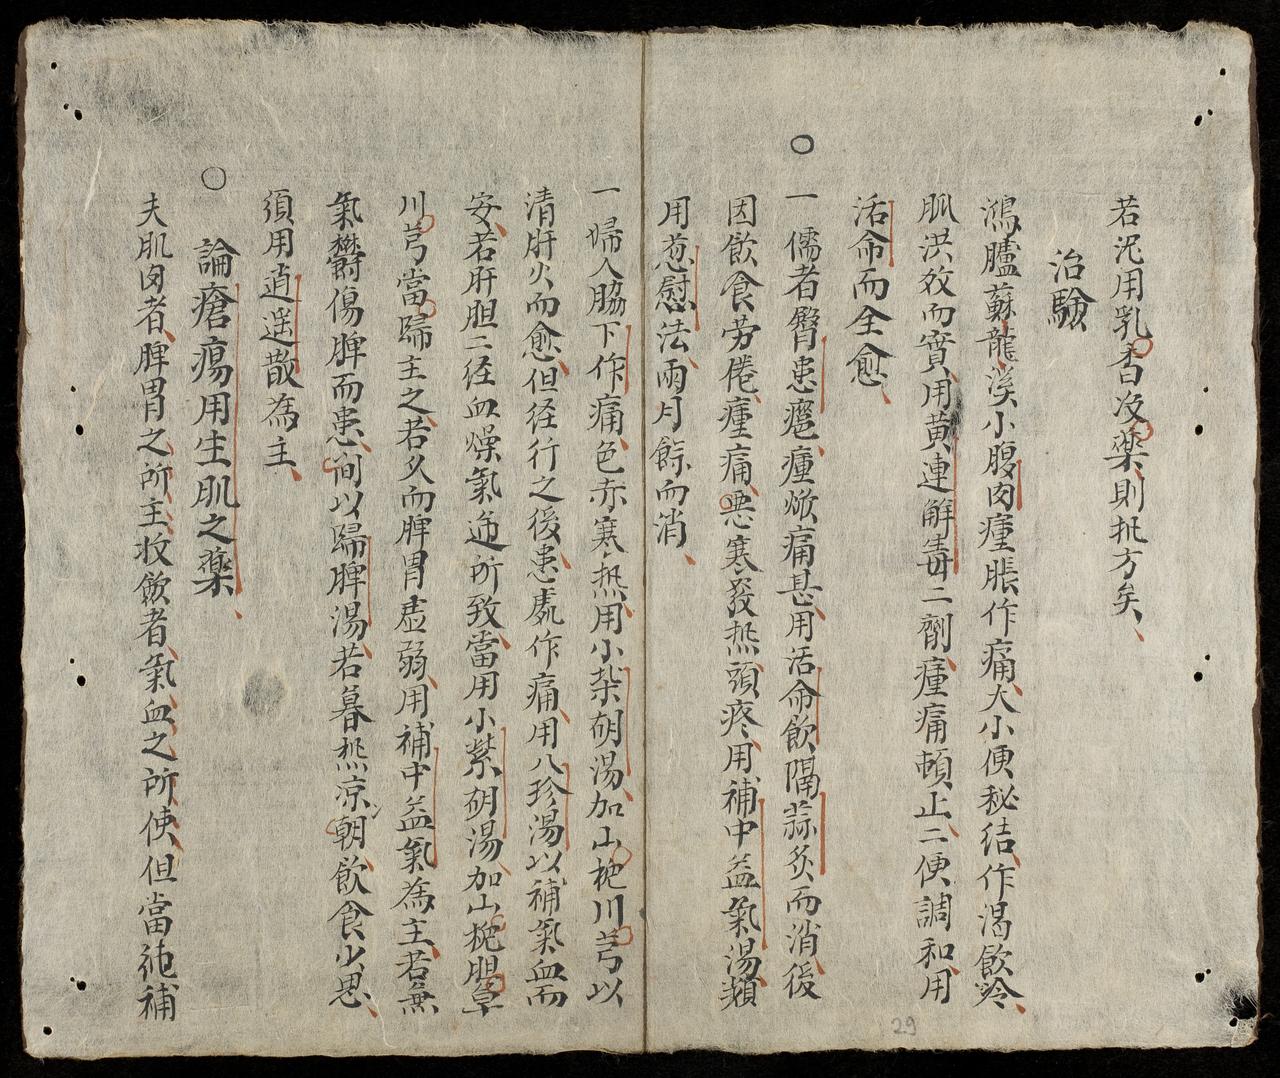 若泥用乳香沒藥則批方矣
治驗
鴻臚蘇龍溪小腹肉瘇脹作痛大小便秘結作渴飲冷
脈洪效而實用黃連解毒二劑瘇痛頓止二便調和用
活命而全愈
○
一儒者臀患癰瘇焮痛甚用活命飲隔蒜炙而消後
因飲食劳倦瘇痛悪寒發热頭疼用補中益氣湯類
用葱慰法兩月餘而消
一婦人脇下作痛色赤寒热用小柴胡湯加山梔川芎以
清肝火而愈但経行之後患處作痛用八珍湯以補氣血而
安若肝胆二経血燥氣逆所致當用小紫胡湯加山梔胆草
川芎當歸主之若久而脾胃虛弱用補中益氣為主若無
氣欝傷脾而患間以歸脾湯若暮热凉朝飲食少思
須用逍遥散為主
○
論瘡瘍用生肌之藥
夫肌肉者脾胃之所主收斂者氣血之所使但當純補
29